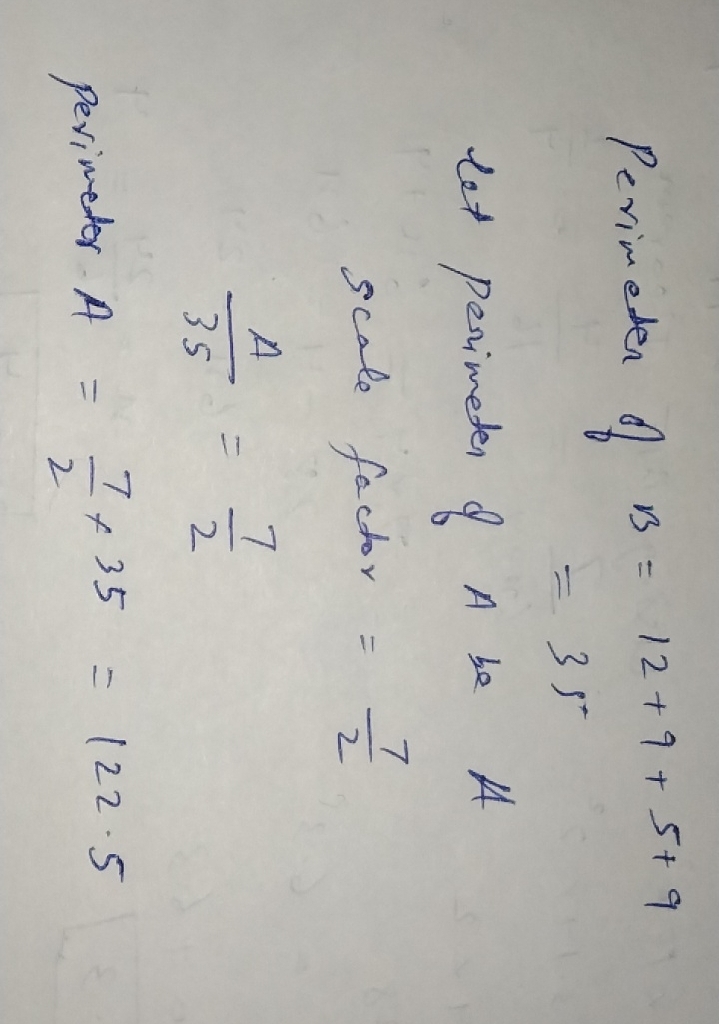 Perimeter of B = 12 + 9 + 5 + 9
= 35
let perimeter of A be A
scale factor = 7/2
A/35 = 7/2
perimeter A = 7/2 × 35 = 122.5